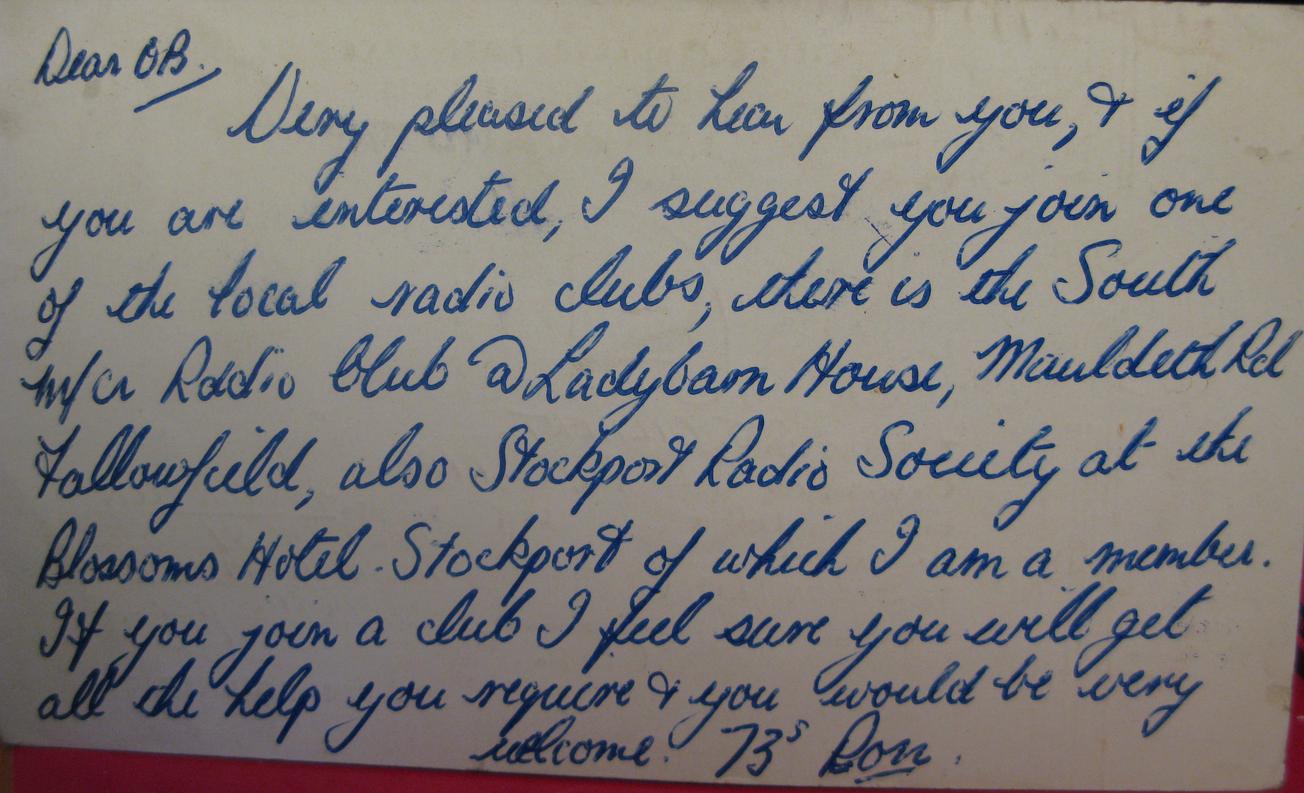 Dear OB.
Very pleased to hear from you, & if
you are interested, I suggest you join one
of the local radio clubs, there is the South
M/cr Radio Club @ Ladybarn House, Mauldeth Rd
Fallowfield, also Stockport Radio Society at the
Blossoms Hotel. Stockport of which I am a member.
If you join a club I feel sure you will get
all the help you require & you would be very
welcome. 73s Ron.